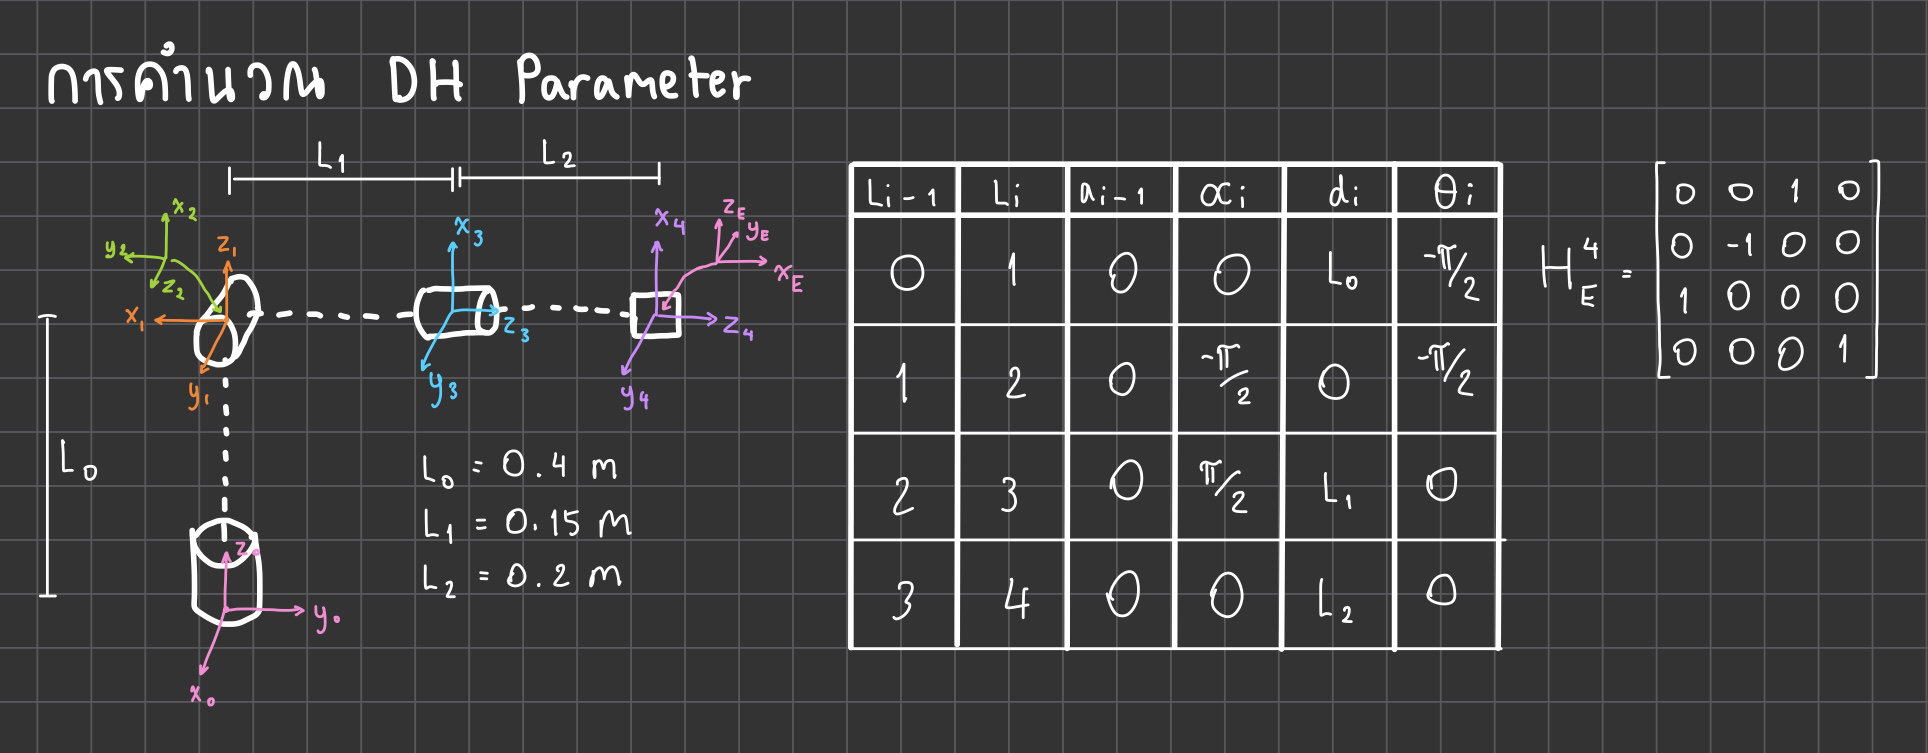 การคำนวณ DH Parameter
L1 L2
x2
y2
z2
z1
x1
y1
x3
z3
y3
x4
z4
y4
zE
yE
xE
L0
z0
y0
x0
L0 = 0.4 m
L1 = 0.15 m
L2 = 0.2 m
Li-1 Li ai-1 αi di θi
0 1 0 0 L0 -π/2
1 2 0 -π/2 0 -π/2
2 3 0 π/2 L1 0
3 4 0 0 L2 0
H4E =
0 0 1 0
0 -1 0 0
1 0 0 0
0 0 0 1